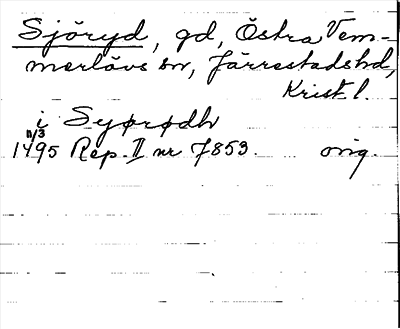 Sjöryd, gd, Östra Vem-
merlövs sn, Järrestads hd,
Krist. l.
i Syørødh
11/3
1495 Rep. II nr 7853. orig.